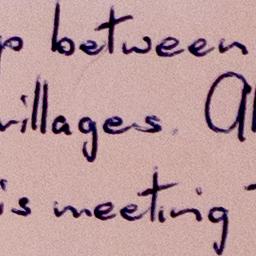 p between
villagers. Al
is meeting